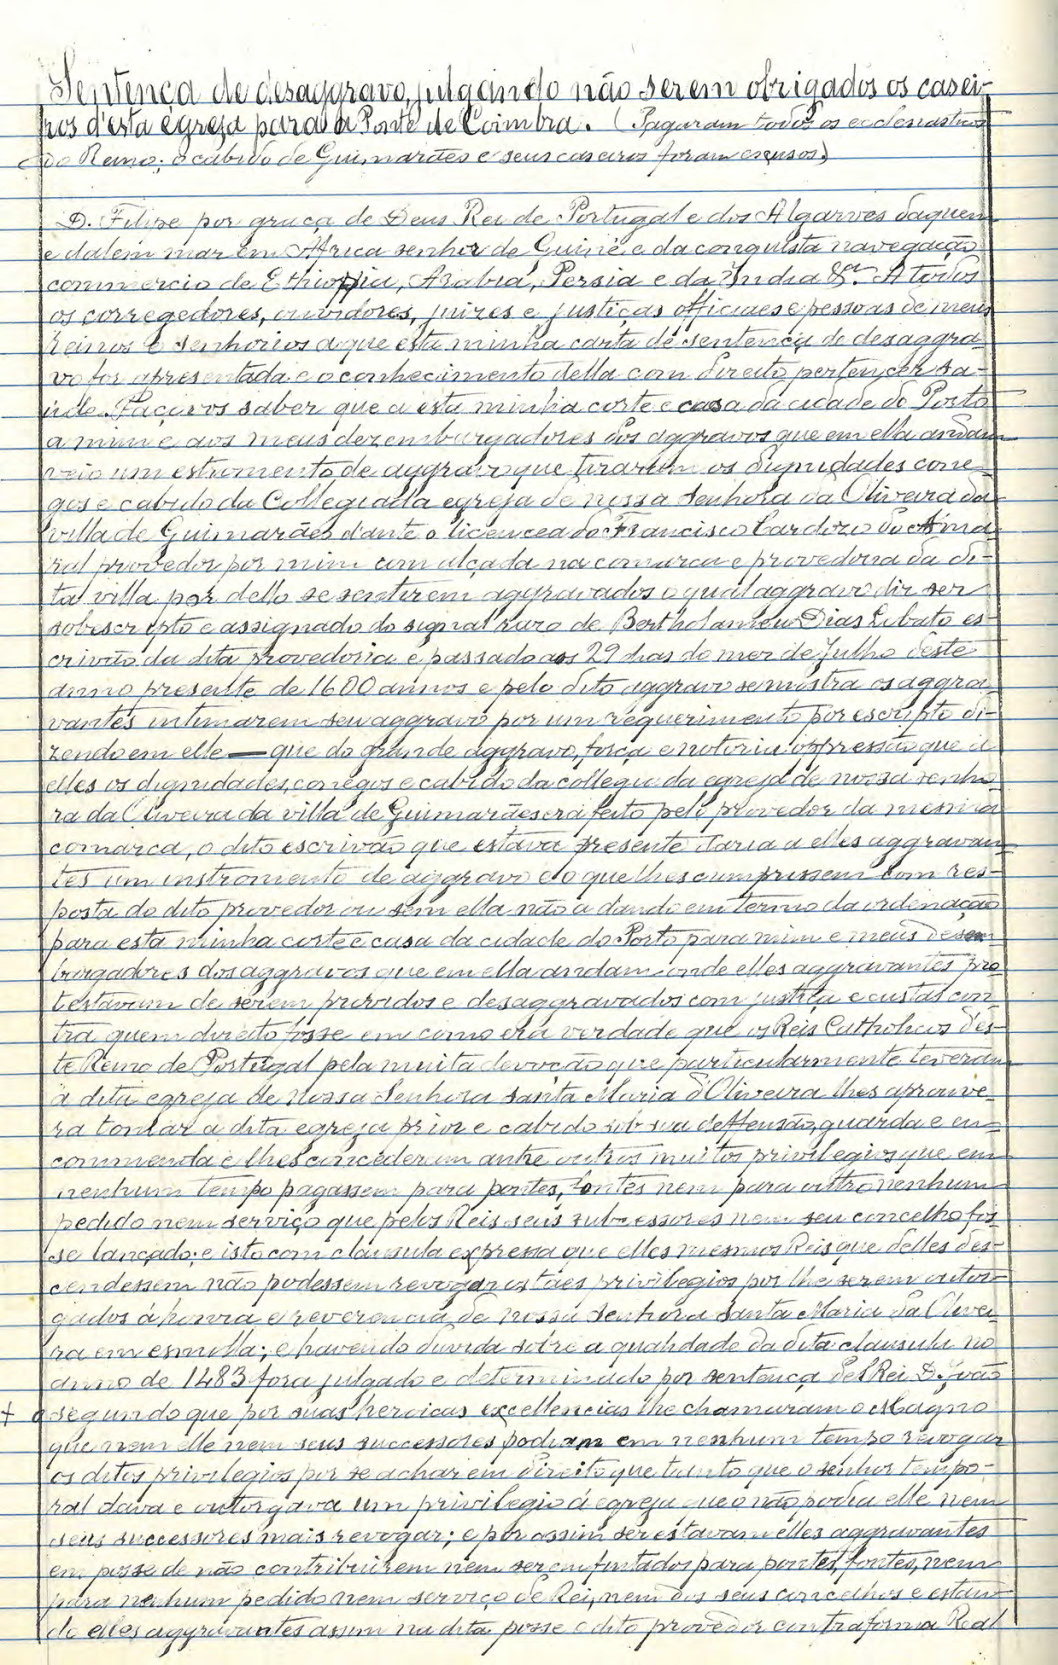 Sentença de desaggravo, julgando não serem obrigados os casei-
ros d'esta egreja para a Ponte de Coimbra. (Pagaram todos os ecclesiasticos
do Reino; o cabido de Guimarães e seus caseiros foram excusos.)
D. Filipe por graça de Deus Rei de Portugal e dos Algarves daquem
e dalem mar em Africa senhor de Guiné e da conquista navegação
commercio de Ethiopia, Arabia, Persia e da India &ª. A todos
os corregedores, ouvidores, juizes e justiças officiaes e pessoas de meus
reinos e senhorios a que esta minha carta de sentença de desaggra-
vo for apresentada e o conhecimento della com direito pertencer sa-
ude. Faço vos saber que a esta minha corte e casa da cidade do Porto
a mim e aos meus dezembargadores dos aggravos que em ella andam
veio um estromento de aggravo que tiraram os dignidades cone-
gos e cabido da Collegiada egreja de nossa Senhora da Oliveira da
villa de Guimarães d'ante o licenceado Francisco Cardozo do Ama-
ral provedor por mim com alçada na comarca e provedoria da di-
ta villa por dello se sentirem aggravados o qual aggravo diz ser
sobescripto e assignado do signal razo de Bertholameu Dias Lobato es-
crivão da dita provedoria e passado aos 29 dias do mez de Julho deste
anno presente de 1600 annos e pelo dito aggravo se mostra os aggra-
vantes intimarem seu aggravo por um requerimento por escripto di-
zendo em elle — que do grande aggravo, força e notoria oppressão que a
elles os dignidades, conegos e cabido da collegiada egreja de nossa senho-
ra da Oliveira da villa de Guimarães era feito pelo provedor da mesma
comarca, o dito escrivão que estava presente daria a elles aggravan-
tes um instromento de aggravo e o que lhes cumprissem com res-
posta do dito provedor ou sem ella não a dando em termo da ordenação
para esta minha corte e casa da cidade do Porto para mim e meus desem-
bargadores dos aggravos que em ella andam onde elles aggravantes pro-
testavam de serem providos e desaggravados com justiça e custas con-
tra quem direito fosse em como era verdade que os Reis Catholicos d'es-
te Reino de Portugal pela muita devoção que particularmente teveram
á dita egreja de Nossa Senhora santa Maria d'Oliveira lhes aprouve-
ra tomar a dita egreja prior e cabido sob sua deffensão, guarda e en-
commenda e lhes concederam antre outros muitos privilegios que em
nenhum tempo pagassem para pontes, fontes nem para outro nenhum
pedido nem serviço que pelos Reis seus subcessores nem seu concelho fos-
se lançado; e isto com clausula expressa que elles mesmos Reis que delles des-
cendessem não podessem revogar os taes privilegios por lhe serem outor-
gados á honra e reverencia de nossa Senhora Santa Maria da Olivei-
ra em esmolla; e havendo duvida sobre a qualidade da dita clausula no
anno de 1483 fora julgado e determinado por sentença d'El Rei D. João
segundo que por suas heroicas excellencias lhe chamaram o Magno
que nem elle nem seus successores podiam em nenhum tempo revogar
os ditos privilegios por se achar em direito que tanto que o senhor tempo-
ral dava e outorgava um privilegio á egreja que o não podia elle nem
seus successores mais revogar; e por assim ser estavam elles aggravantes
em posse de não contribuirem nem serem fintados para pontes, fontes, nem
para nenhum pedido nem serviço de Rei, nem dos seus concelhos e estan-
do elles aggravantes assim na dita posse o dito provedor contra forma Real